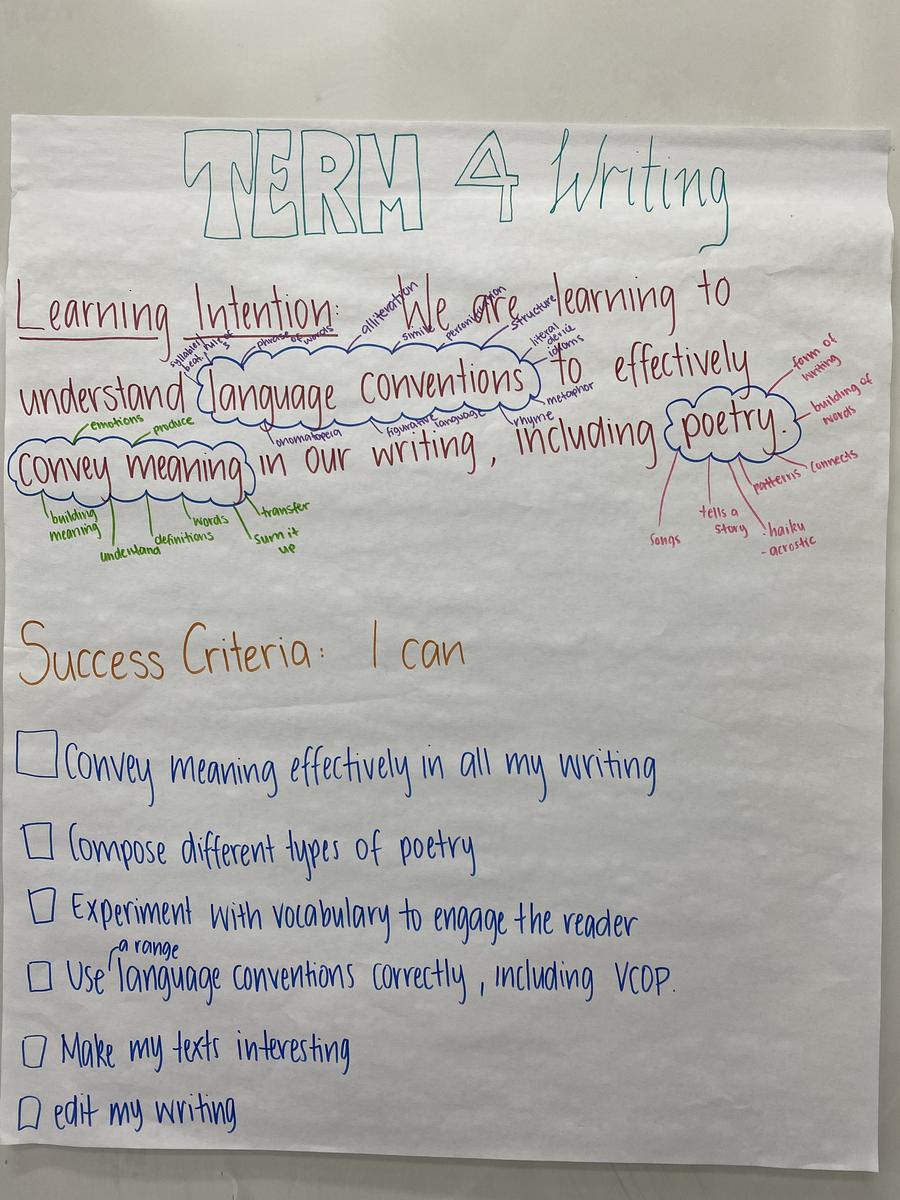 TERM 4 Writing
Learning Intention: We are learning to
alliteration
simile
personification
structure
syllables
beat
rules of
phrase of words
literal
idioms
understand language conventions to effectively
form of
writing
building of
words
metaphor
rhyme
figurative language
onomatopeia
emotions
produce
convey meaning in our writing, including poetry.
building
meaning
understand
definitions
words
transfer
sum it
up
patterns
connects
songs
tells a
story
- haiku
- acrostic
Success Criteria: I can
Convey meaning effectively in all my writing
Compose different types of poetry
Experiment with vocabulary to engage the reader
a range
Use language conventions correctly, including VCOP.
Make my texts interesting
edit my writing